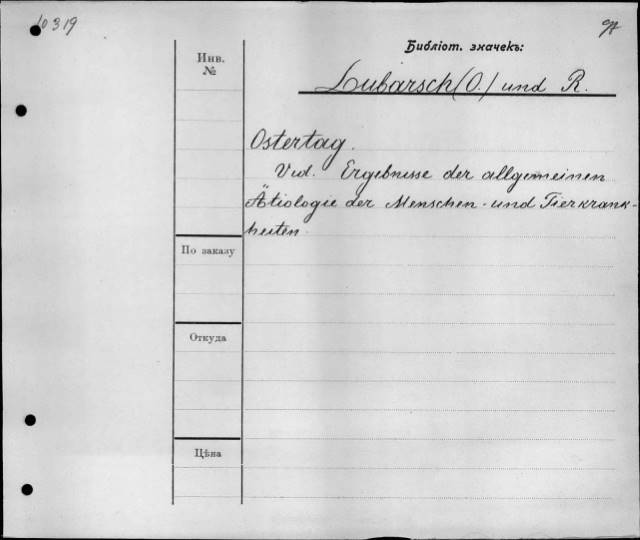 10319
Библіот. значекъ:
Инв.
№
Lubarsch (O.) und R.
Ostertag.
Vid. Ergebnisse der allgemeinen
Ätiologie der Menschen- und Tierkrank-
heiten.
По заказу
Откуда
Цѣна